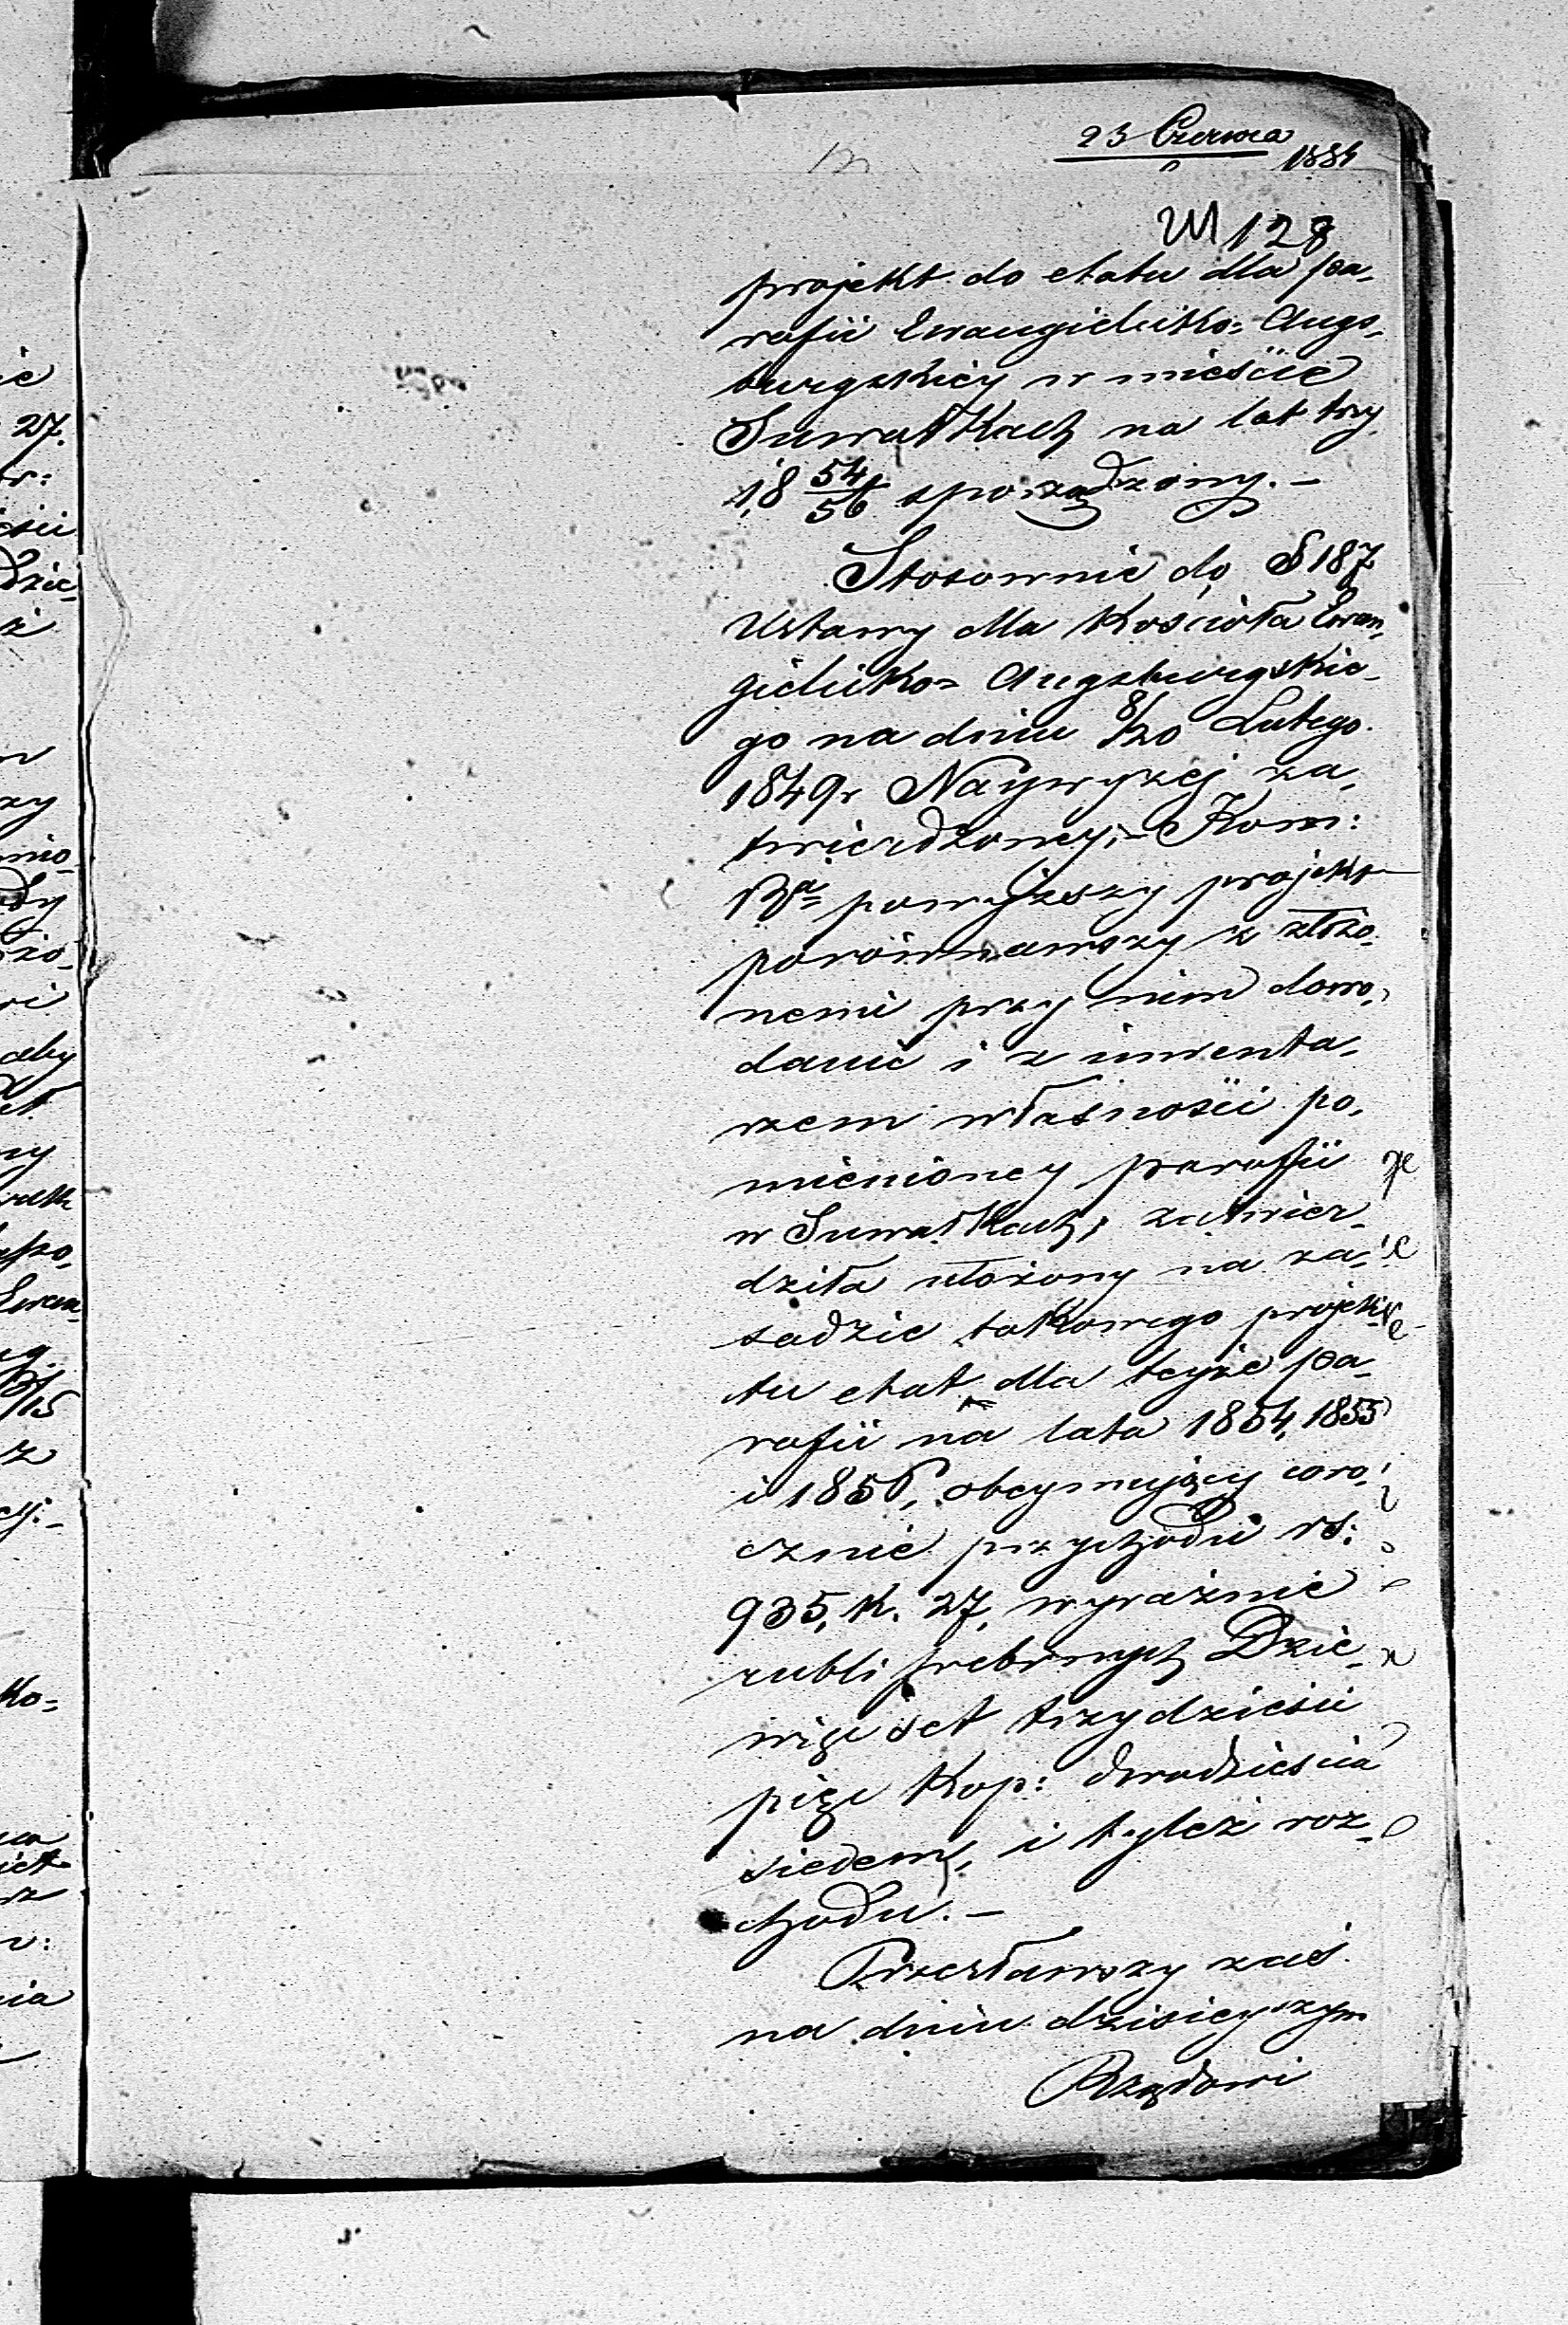 23 Czerwca
1854
128
projekt do etatu dla pa-
rafii Ewangielicko-Augs-
burgskiey w mieście
Suwałkach na lat trzy
18 54/56 sporządzony.-
Stosownie do § 187
Ustawy dla Kościoła Ewan-
gielicko-Augsburgskie-
go na dniu 8/20 Lutego
1849 r Naywyżej za-
twierdzoney,- Kom:
Rª powyższy projekt
porównawszy z złożo-
nemi przy nim dowo-
dami i z inwenta-
rzem własności po-
mienioney parafii
w Suwałkach, zatwier-
dziła ułożony na za-
sadzie takowego projek-
tu etat dla teyże pa-
rafii na lata 1854, 1855
i 1856, obeymujący coro-
cznie przychodu rs:
935, k. 27, wyraźnie
rubli srebrnych Dzie-
więćset trzydzieści
pięć Kop: dwadzieścia
siedem, i tyleż roz-
chodu.-
Przesławszy zaś
na dniu dzisieyszym
Rządowi